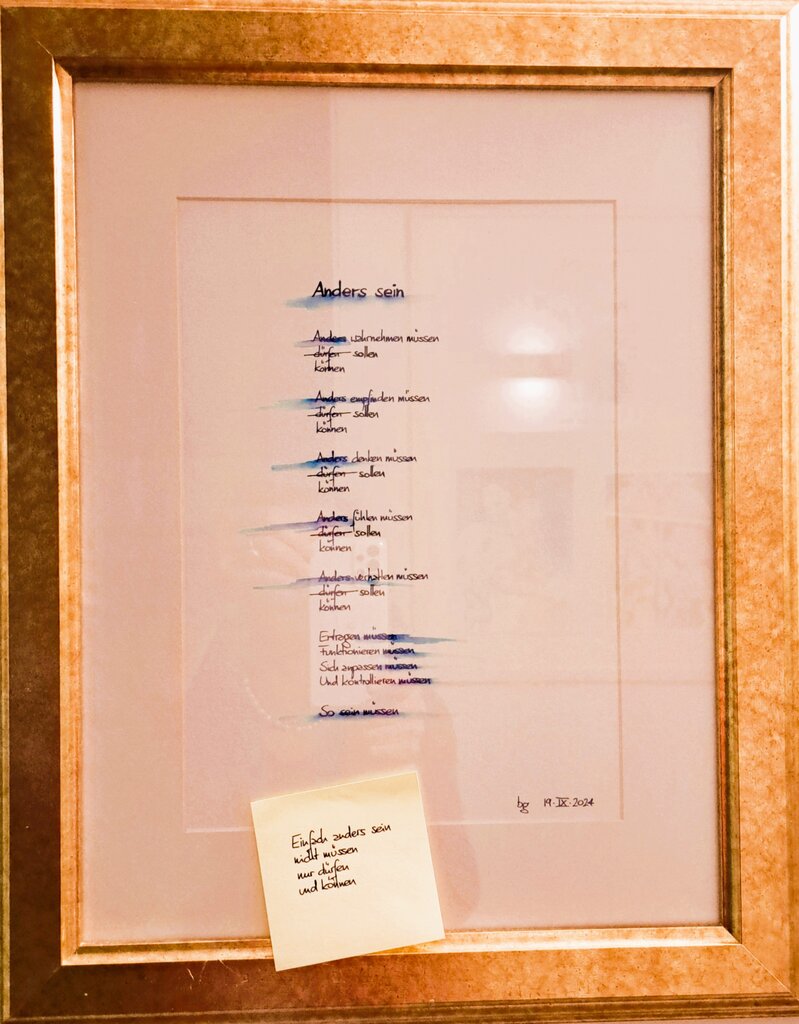 Anders sein
Anders wahrnehmen müssen
dürfen sollen
können
Anders empfinden müssen
dürfen sollen
können
Anders denken müssen
dürfen sollen
können
Anders fühlen müssen
dürfen sollen
können
Anders verhalten müssen
dürfen sollen
können
Ertragen müssen
Funktionieren müssen
Sich anpassen müssen
Und kontrollieren müssen
So sein müssen
bg 19.IX.2024
Einfach anders sein
nicht müssen
nur dürfen
und können